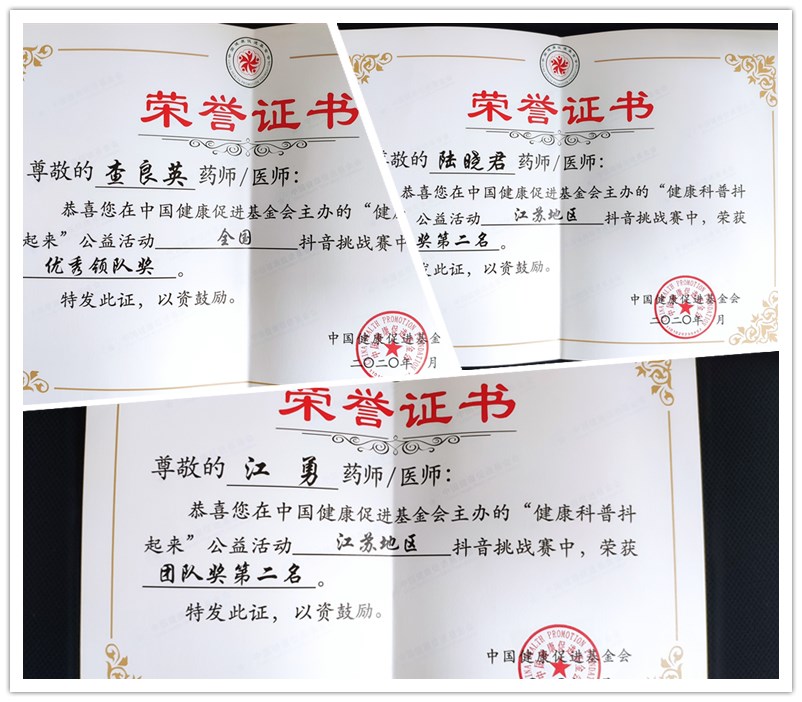 荣誉证书
尊敬的 查良英 药师/医师：
恭喜您在中国健康促进基金会主办的“健
起来”公益活动 全国 抖音挑战赛中
优秀领队奖。
特发此证，以资鼓励。
中国健康促进基金
二〇二〇年 月
荣誉证书
尊敬的 陆晓君 药师/医师：
恭喜您在中国健康促进基金会主办的“健康科普抖
公益活动 江苏地区 抖音挑战赛中，荣获
奖第二名。
发此证，以资鼓励。
中国健康促进基金会
二〇二〇年 月
荣誉证书
尊敬的 江勇 药师/医师：
恭喜您在中国健康促进基金会主办的“健康科普抖
起来”公益活动 江苏地区 抖音挑战赛中，荣获
团队奖第二名。
特发此证，以资鼓励。
中国健康促进基金会